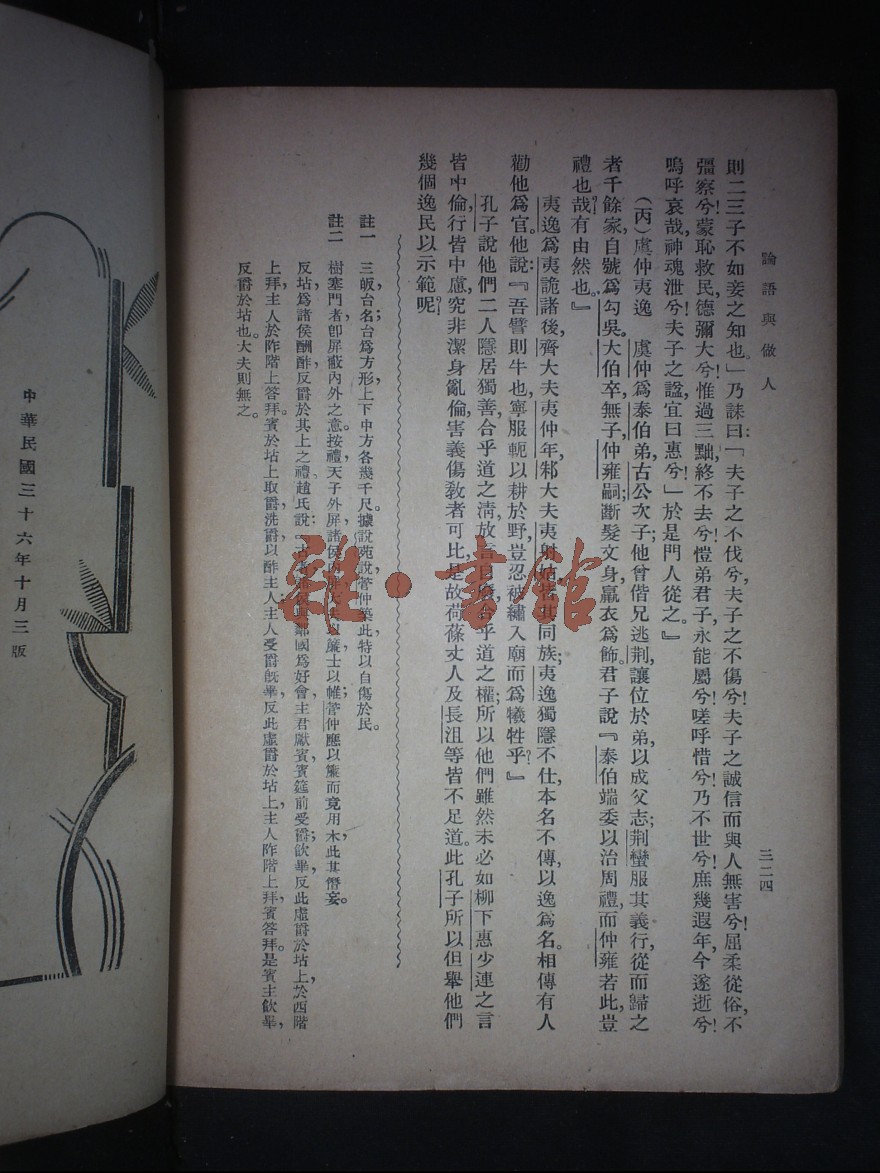 論語與做人
三二四
則二三子不如妾之知也。」乃誄曰:「夫子之不伐兮,夫子之不傷兮!夫子之誠信而與人無害兮!屈柔從俗,不
彊察兮!蒙恥救民,德彌大兮!惟過三黜,終不去兮!愷弟君子,永能厲兮!嗟呼惜兮!乃不世兮!庶幾遐年,今遂逝兮!
嗚呼哀哉,神魂泄兮!夫子之諡,宜曰惠兮!」於是門人從之。』
(丙)虞仲夷逸 虞仲爲泰伯弟,古公次子;他曾偕兄逃荆,讓位於弟以成父志;荆蠻服其義行,從而歸之
者千餘家,自號爲勾吳。大伯卒,無子,仲雍嗣;斷髮文身,臝衣爲飾。君子說『泰伯端委以治周禮,而仲雍若此,豈
禮也哉?有由然也。』
夷逸爲夷詭諸後,齊大夫夷仲年,邾大夫夷射姑,皆其同族;夷逸獨隱不仕,本名不傳,以逸爲名。相傳有人
勸他爲官,他說:『吾譬則牛也,寧服軛以耕於野,豈忍被繡入廟而爲犧牲乎?』
孔子說他們二人隱居獨善,合乎道之淸,放言自廢,合乎道之權;所以他們雖然未必如柳下惠少連之言
皆中倫,行皆中慮,究非潔身亂倫,害義傷敎者可比,是故荷蓧丈人及長沮等皆不足道。此孔子所以但舉他們
幾個逸民以示範呢?
註一 三皈,台名;台爲方形,上下中方各幾千尺。據說苑說,管仲築此,特以自傷於民。
註二 樹塞門者,卽屏蔽內外之意。按禮,天子外屏,諸侯內屏,大夫以簾,士以帷;管仲應以簾而竟用木,此其僭妄。
反坫爲諸侯酬酢反爵於其上之禮。趙氏說:古者諸侯與鄰國爲好會,主君獻賓,賓筵前受爵,飲畢,反此虛爵於坫上,於西階
上拜,主人於阼階上答拜。賓於坫上取爵,洗爵以酢主人,主人受爵旣畢,反此虛爵於坫上,主人阼階上拜,賓答拜。是賓主飲畢,
反爵於坫也。大夫則無之。
中華民國三十六年十月三版
雜·書館